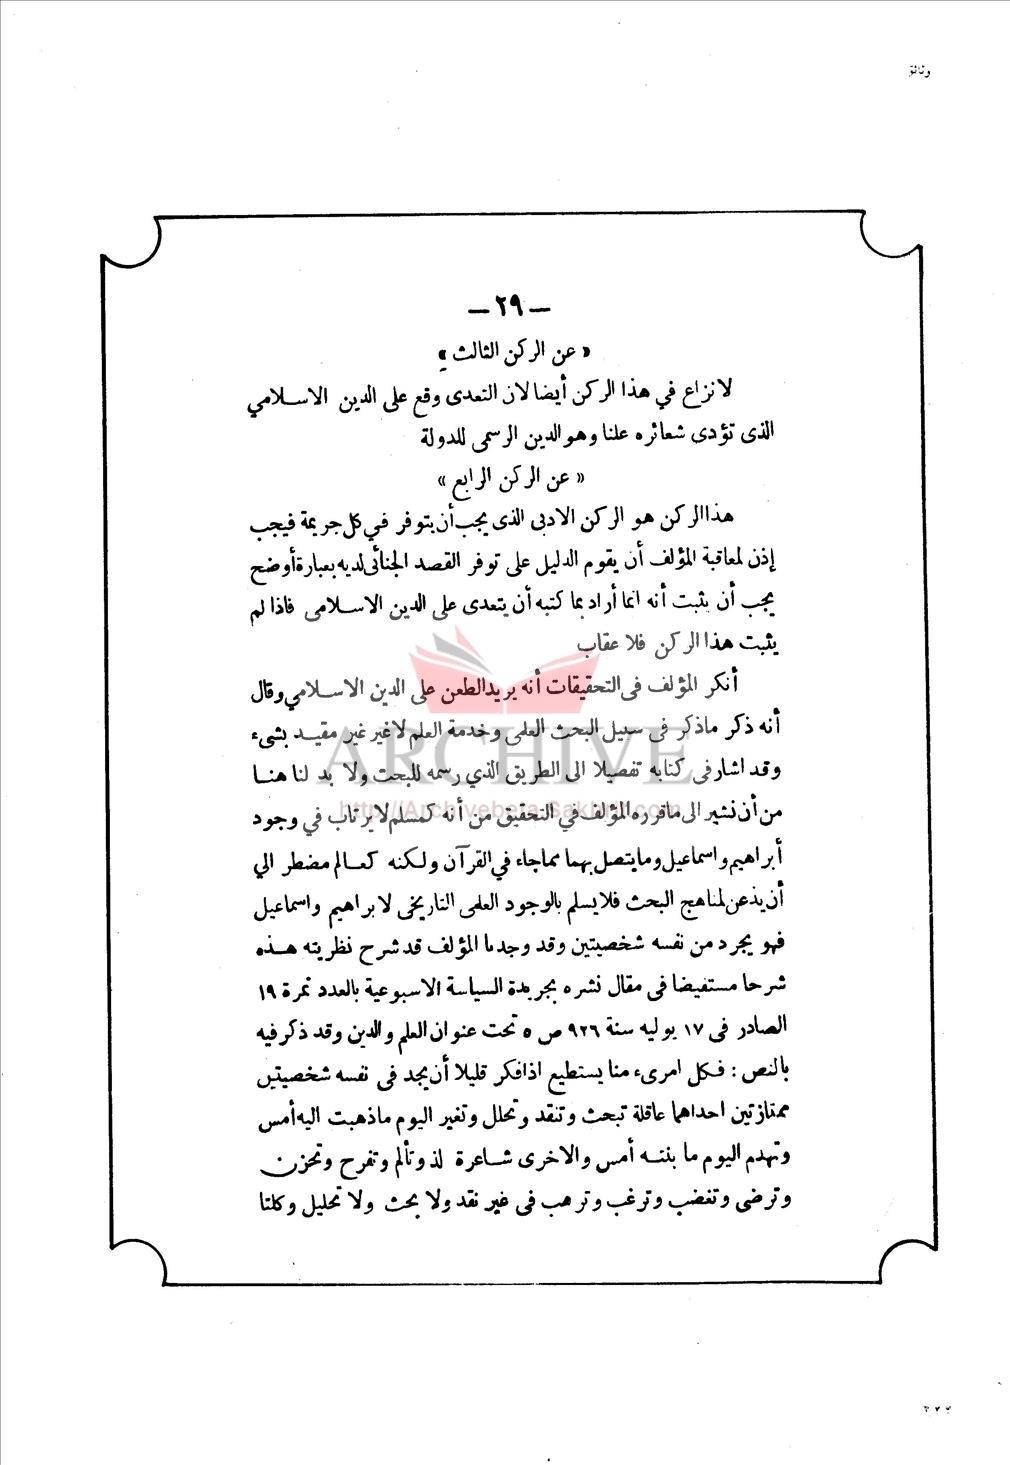 وثائق
— ٢٩ —
« عن الركن الثالث »
لا نزاع في هذا الركن أيضا لان التعدى وقع على الدين الاسلامي
الذى تؤدى شعائره علنا وهو الدين الرسمى للدولة
« عن الركن الرابع »
هذا الركن هو الركن الادبى الذى يجب أن يتوفر في كل جريمة فيجب
إذن لمعاقبة المؤلف أن يقوم الدليل على توفر القصد الجنائى لديه بعبارة أوضح
يجب أن يثبت أنه انما أراد بما كتبه أن يتعدى على الدين الاسلامى فاذا لم
يثبت هذا الركن فلا عقاب
أنكر المؤلف فى التحقيقات أنه يريد الطعن على الدين الاسلامي وقال
أنه ذكر ماذكر فى سبيل البحث العلمى وخدمة العلم لا غير غير مقيد بشىء
وقد اشار فى كتابه تفصيلا الى الطريق الذي رسمه للبحث ولا بد لنا هنا
من أن نشير الى ماقرره المؤلف في التحقيق من أنه كمسلم لا يرتاب في وجود
أبراهيم واسماعيل وما يتصل بهما مما جاء في القرآن ولكنه كعالم مضطر الي
أن يذعن لمناهج البحث فلا يسلم بالوجود العلمى التاريخى لابراهيم واسماعيل
فهو يجرد من نفسه شخصيتين وقد وجدنا المؤلف قد شرح نظريته هذه
شرحا مستفيضا فى مقال نشره بجريدة السياسة الاسبوعية بالعدد نمرة ١٩
الصادر فى ١٧ يوليه سنة ٩٢٦ ص ٥ تحت عنوان العلم والدين وقد ذكر فيه
بالنص : فكل امرىء منا يستطيع اذا فكر قليلا أن يجد فى نفسه شخصيتين
ممتازتين احداهما عاقلة تبحث وتنقد وتحلل وتغير اليوم ماذهبت اليه أمس
وتهدم اليوم ما بنته أمس والاخرى شاعرة لذ وتألم وتفرح وتحزن
وترضى وتغضب وترغب وترهب فى غير نقد ولا بحث ولا تحليل وكلتا
ARCHIVE
http://Archivebeta.Sakhrit.com